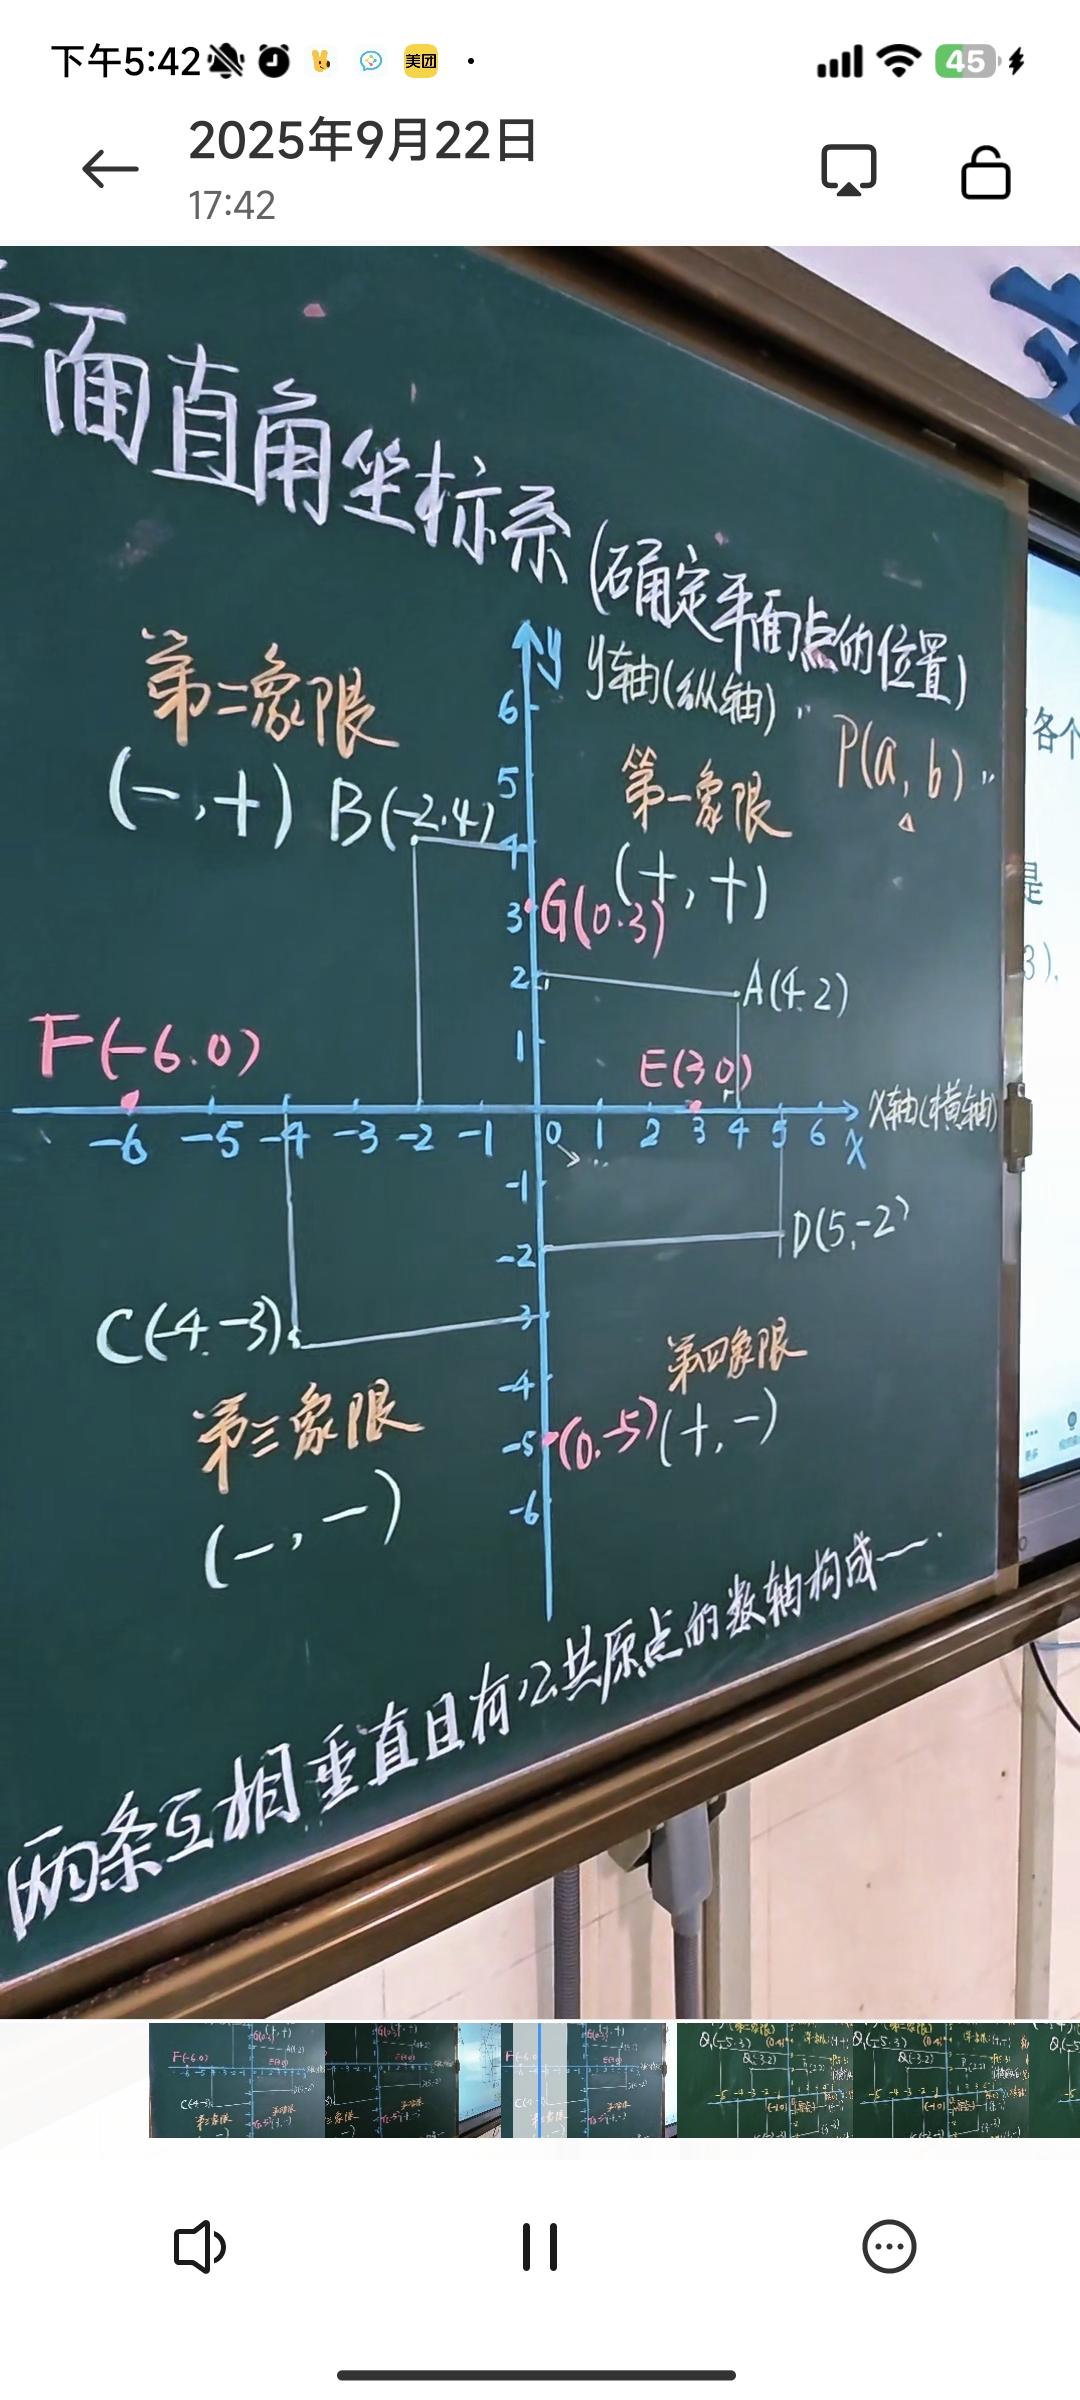 下午5:42
美团
45
2025年9月22日
17:42
面直角坐标系(确定平面点的位置)
y
y轴(纵轴)
第二象限
(-,+)
B(-2,4)
第一象限
(+,+)
P(a,b)
6
5
4
3
2
1
G(0.3)
A(4.2)
F(-6.0)
E(3 0)
-6 -5 -4 -3 -2 -1 0 1 2 3 4 5 6
x
X轴(横轴)
-1
-2
-3
-4
-5
-6
D(5,-2)
C(-4.-3)
第三象限
(-,-)
第四象限
(0.-5)
(+,-)
(两条互相垂直且有公共原点的数轴构成一
各个
是
3).